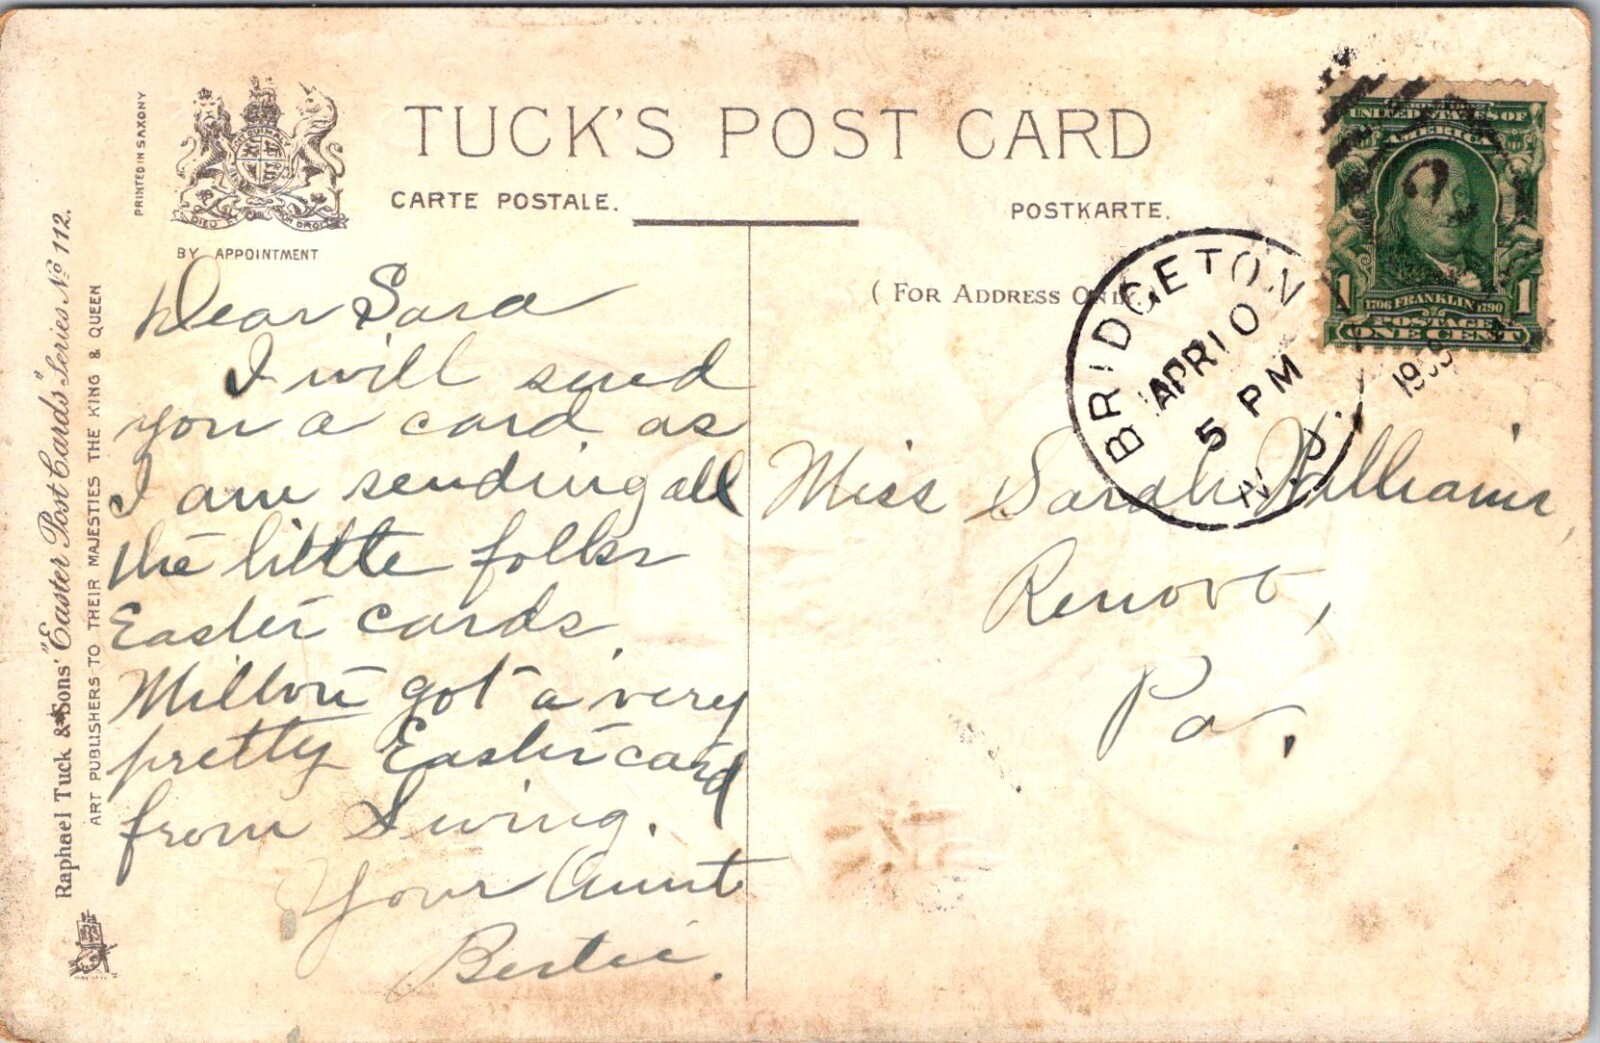 TUCK'S POST CARD
CARTE POSTALE.
POSTKARTE.
PRINTED IN SAXONY
BY APPOINTMENT
(FOR ADDRESS ONLY
Raphael Tuck & Sons' "Easter Post Cards" Series No 112.
ART PUBLISHERS TO THEIR MAJESTIES THE KING & QUEEN
Dear Sara
I will send
you a card as
I am sending all
the little folks
Easter cards.
Milton got a very
pretty Easter card
from Irving.
Your Aunt
Bertie.
BRIDGETON
APR 10
5 PM
N.J.
UNITED STATES OF
AMERICA
2
1 1706 FRANKLIN 1790 1
POSTAGE
ONE CENT
Miss Sarah Williams,
Renovo,
Pa.